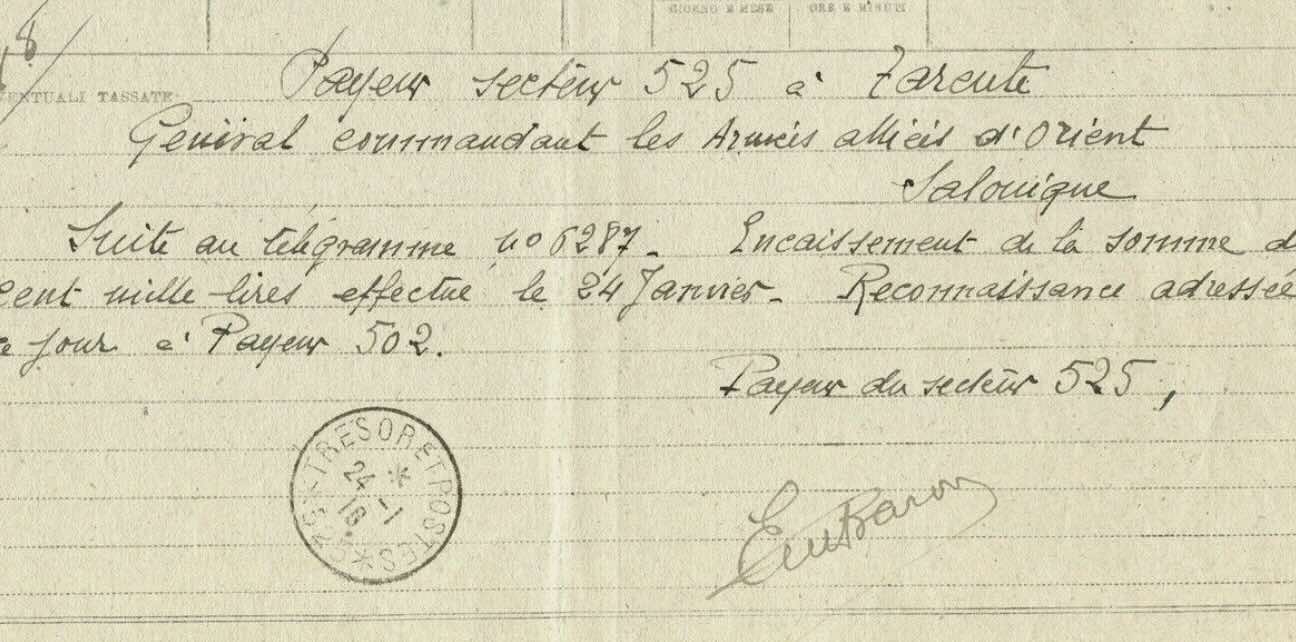 GIORNO E MESE ORE E MINUTI
18/
EVENTUALI TASSATE
Payeur secteur 525 à Tarente
Général commandant les Armées alliées d'Orient
Salonique
Suite au télégramme no 6287. Encaissement de la somme d
cent mille lires effectué le 24 Janvier. Reconnaissance adressée
ce jour à Payeur 502.
Payeur du secteur 525,
TRESOR ET POSTES * 525 *
24 - 1
18